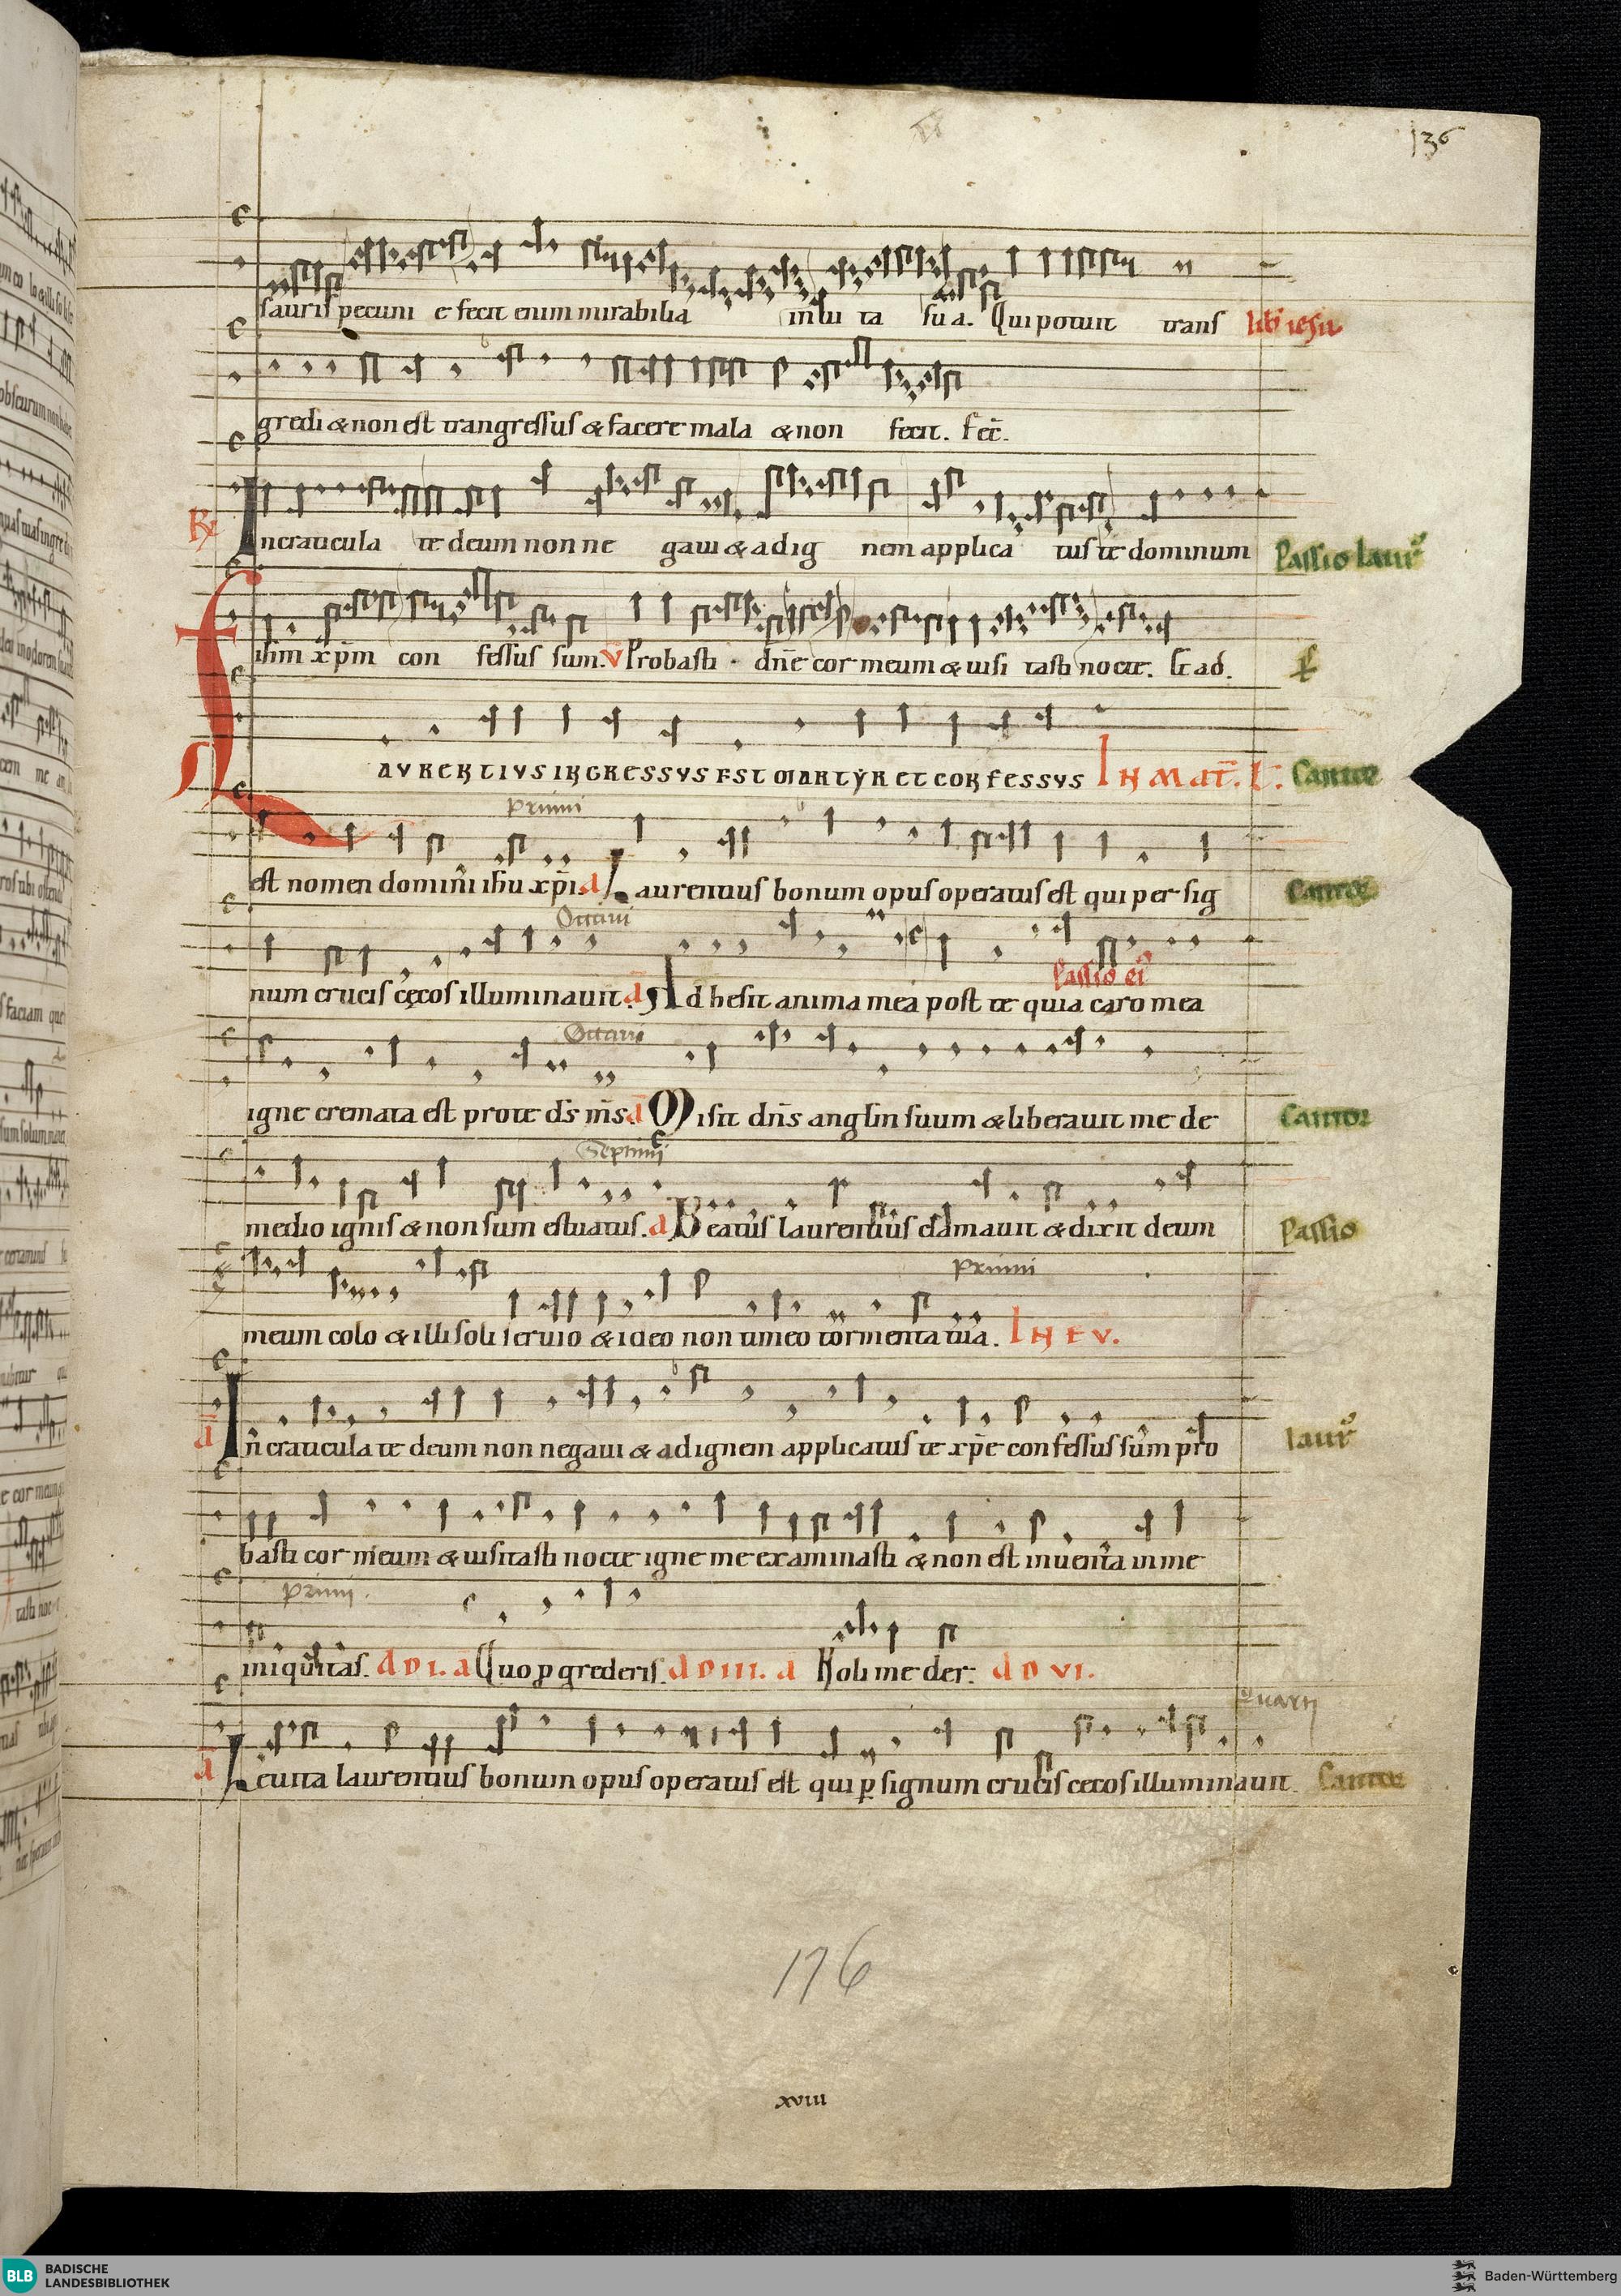 136
sauris pecuni e fecit enim mirabilia in ui ta su a. Qui potuit trans lib iesu
gredi & non est trangressus & facere mala & non fecit. Fec̄.
R In craticula te deum non ne gaui & ad ig nem applica tus te dominum Passio laur
ihm xp̄m con fessus sum. V Probasti dn̄e cor meum & uisi tasti nocte. Et ad.
LAVRENTIVS INGRESSVS EST MARTYR ET CONFESSVS IN MAT̄. L. Cantor
primi
est nomen domini ihu xpi. a Laurentius bonum opus operatus est qui per sig Cantor
Octaui
Passio ei
num crucis cęcos illuminauit. a Ad hesit anima mea post te quia caro mea
Octaui
igne cremata est pro te ds ms. a Misit dn̄s anglm suum & liberauit me de Cantor
Septimi
medio ignis & non sum estuatus. a Beatus laurentius clamauit & dixit deum Passio
primi
meum colo & illi soli seruio & ideo non timeo tormenta tua. IN EV.
a In craticula te deum non negaui & ad ignem applicatus te xp̄e confessus sum pro laur
basti cor meum & uisitasti nocte igne me examinasti & non est inuenta in me
primi.
iniquitas. a D I. a Quo p grederis. a D III. a Noli me der. a D VI.
Quarti
a Leuita laurentius bonum opus operatus est qui p signum crucis cecos illuminauit Cantor
176
xviii
BLB BADISCHE
LANDESBIBLIOTHEK
Baden-Württemberg